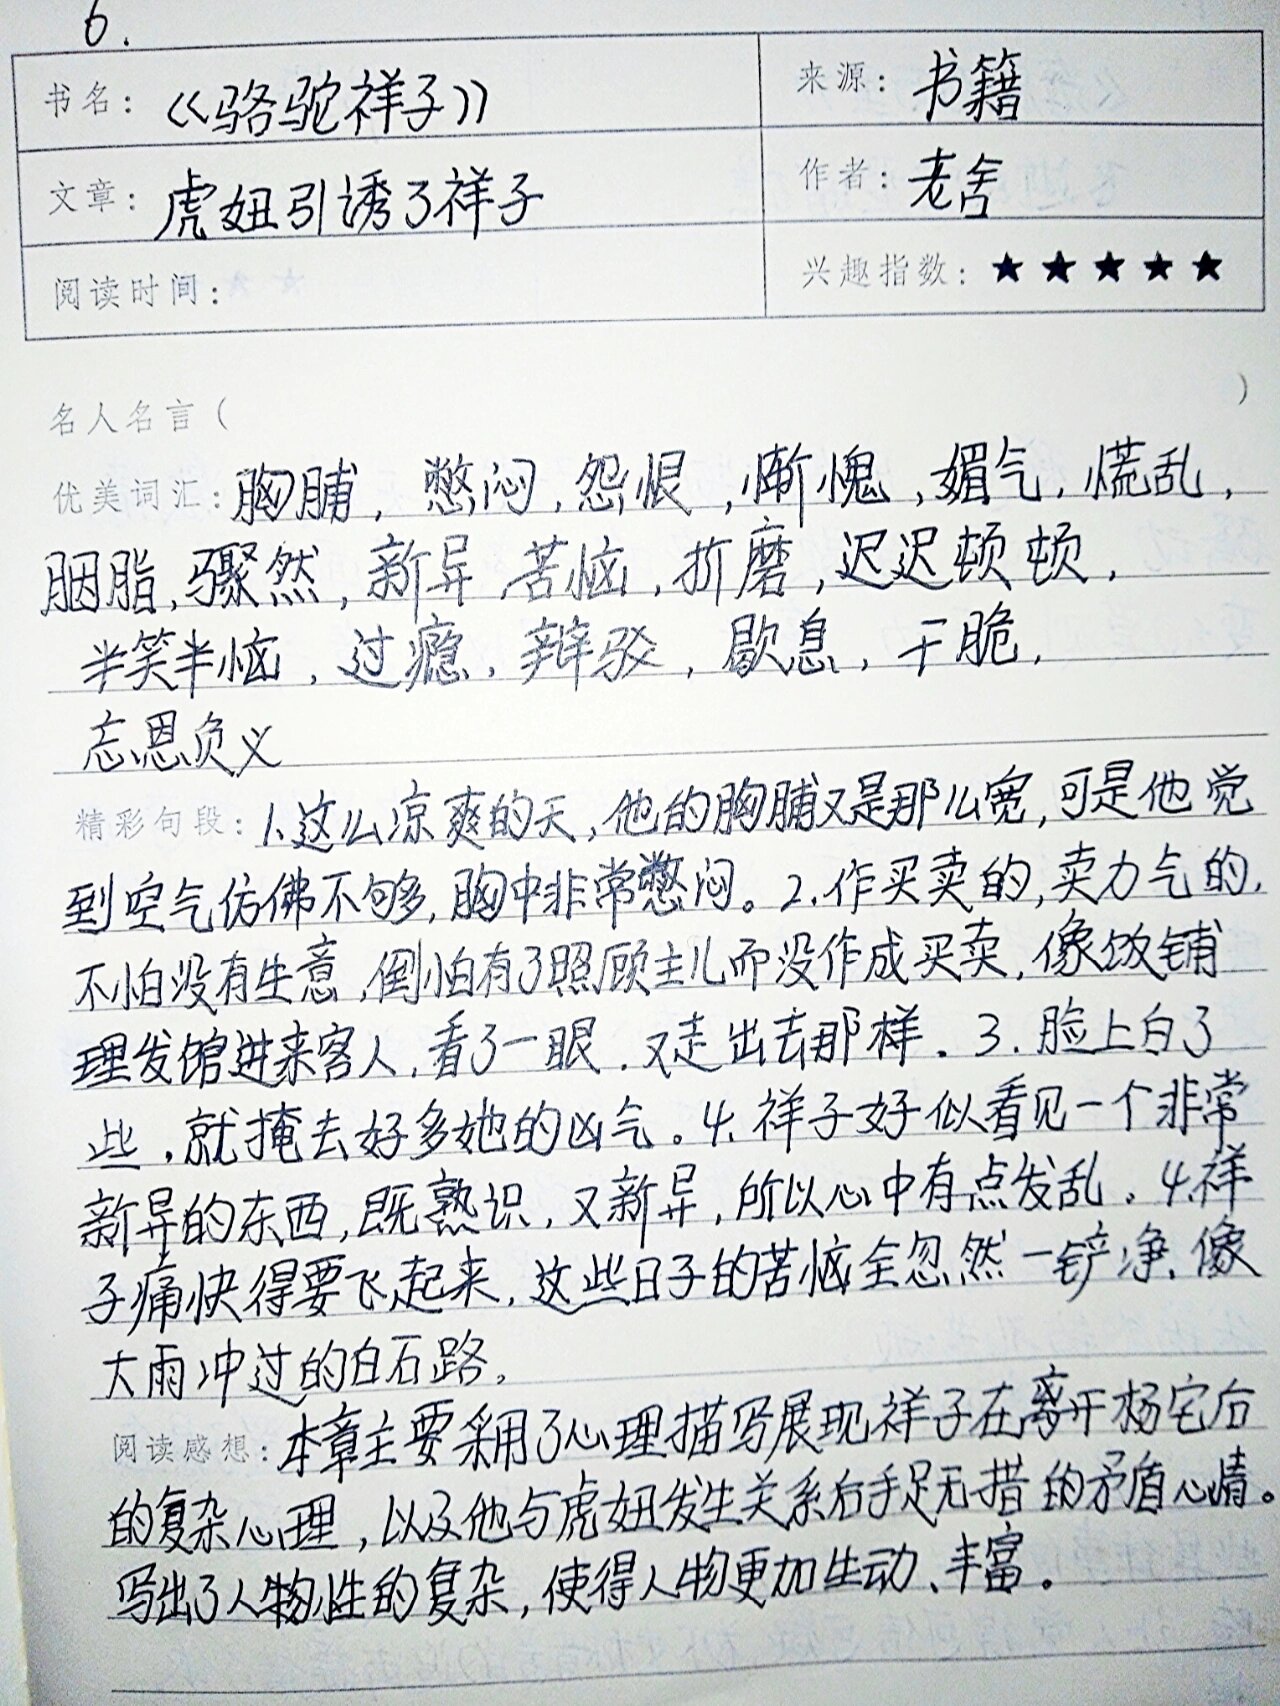 6.
书名：《骆驼祥子》 来源：书籍
文章：虎妞引诱了祥子 作者：老舍
阅读时间： 兴趣指数：★★★★★
名人名言（ ）
优美词汇：胸脯，憋闷，怨恨，惭愧，媚气，慌乱，
胭脂，骤然，新异，苦恼，折磨，迟迟顿顿，
半笑半恼，过瘾，辩驳，歇息，干脆，
忘恩负义
精彩句段：1.这么凉爽的天，他的胸脯又是那么宽，可是他觉
到空气仿佛不够，胸中非常憋闷。2.作买卖的，卖力气的，
不怕没有生意，倒怕有了照顾主儿而没作成买卖，像饭铺
理发馆进来客人，看了一眼，又走出去那样。3.脸上白了
些，就掩去好多她的凶气。4.祥子好似看见一个非常
新异的东西，既熟识，又新异，所以心中有点发乱。4.祥
子痛快得要飞起来，这些日子的苦恼全忽然一铲净，像
大雨冲过的白石路。
阅读感想：本章主要采用了心理描写展现祥子在离开杨宅后
的复杂心理，以及他与虎妞发生关系后手足无措的矛盾心情。
写出了人物性的复杂，使得人物更加生动、丰富。